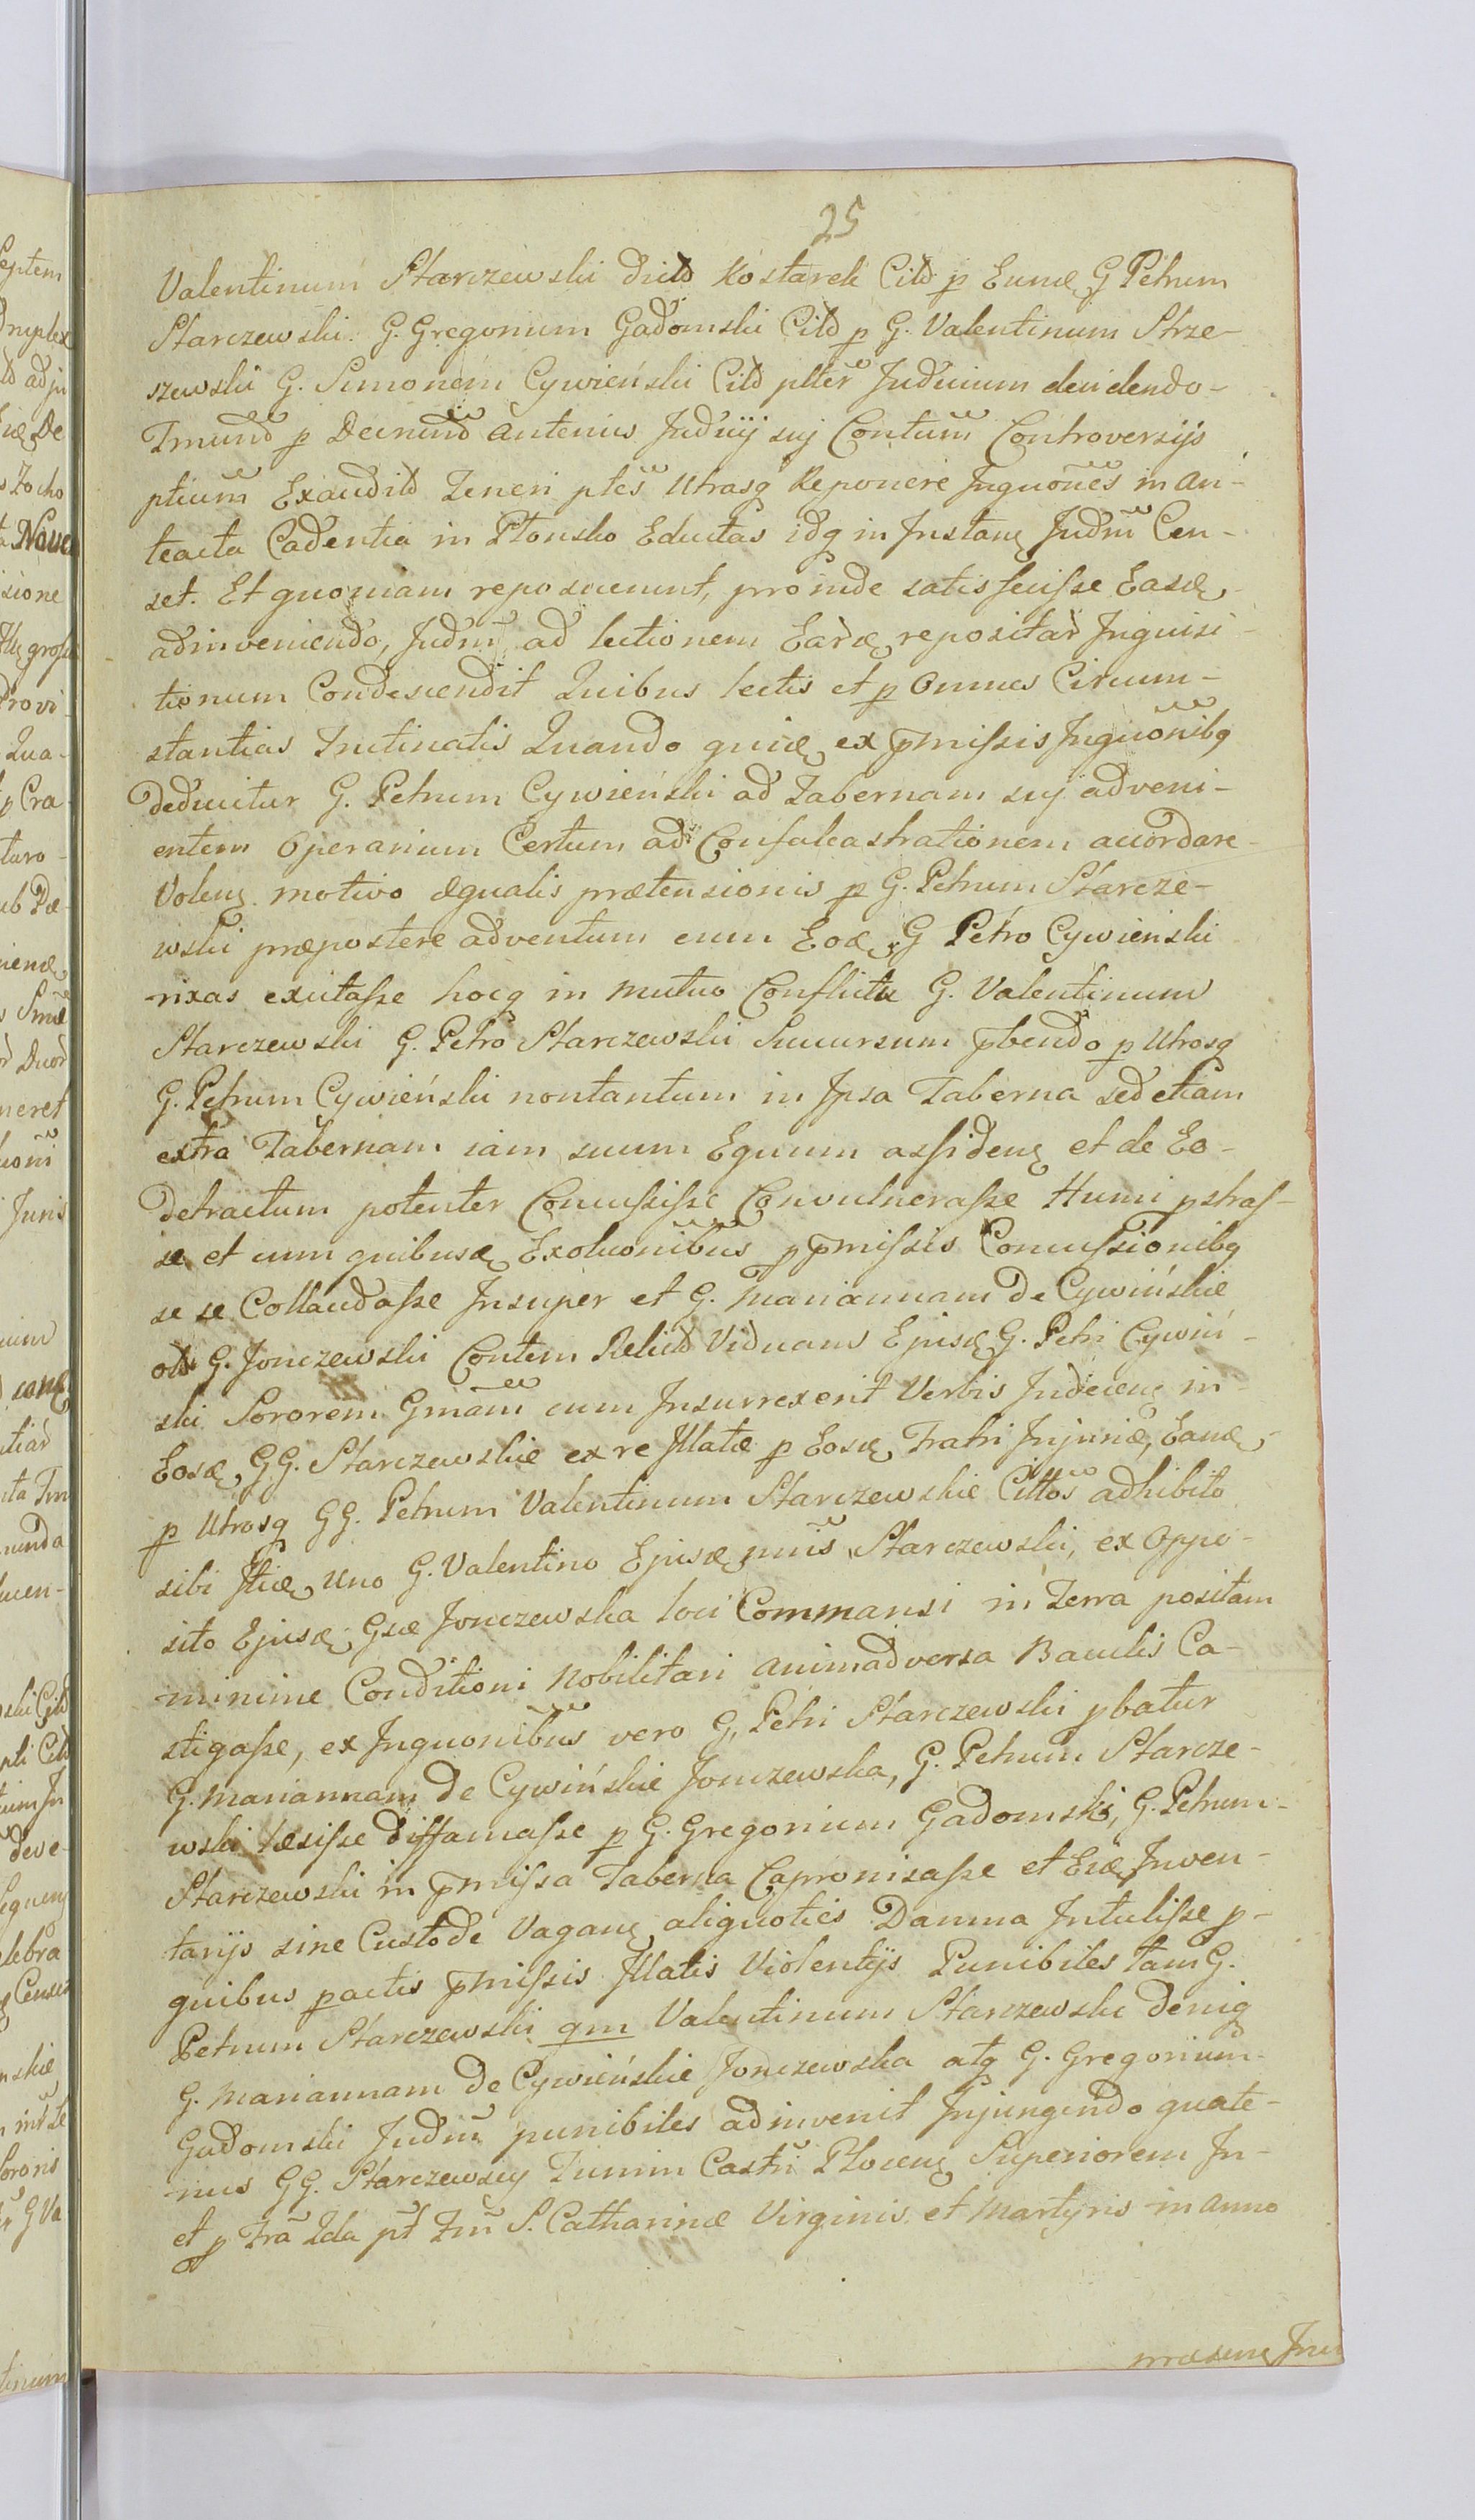 25
Valentinum Starczewski dictd Kostarek Citd p Eumę G Petrum
Starczewski. G. Gregorium Gadomski Citd p G. Valentinum Strze-
szewski G. Simonem Cywieński Citd plter Judicium decidendo-
Tmund p Decnund Antenus Judicij sui Contum Controversijs
ptium Exaudit Teneri ptes Utrasq Reponere Inquones in An-
teacta Cadentia in Płonsko Eductas idq in Instanę Judm Cen-
set. Et quoniam reposuerunt, proinde satisfecisse Easdę
adinveniendo, Judm ad lectionem Eardę repositar Inquisi-
tionum Condescendit Quibus lectis et p Omnes Circum-
stantias Trutinatis Quando quidę ex pmissis Inquonibq
deducitur G. Petrum Cywieński ad Tabernam sui adveni-
entem Operarium Certum ad Confalcastrationem accordare
Volenę motivo æqualis prætensionis p G. Petrum Starcze-
wski præpostere adventum cum Eodę G Petro Cywieński
rixas excitasse hocq in mutuo Conflictu G. Valentinum
Starczewski G. Petro Starczewski Succursum pbendo p Utrosq
G. Petrum Cywieński nontantum in Ipsa Taberna sed etiam
extra Tabernam iam suum Equum assidenę et de Eo-
detractum potenter Concussisse Convulnerasse Humi pstras-
se et cum quibusdę Exoluonibus p pmissis Concussionibq
se se Collaudasse Insuper et G. Mariannam de Cywińskie
od G. Jonczewski Contem Relictd Viduam Ejusdę G. Petri Cywiń-
ski Sororem Gmam cum Insurrexerit Verbis Indecenę in-
Eosdę GG. Starczewskie ex re Illatæ p Eosdę Fratri Injuriæ, Eamdę
p Utrosq GG. Petrum Valentinum Starczewskie Cittos adhibito
sibi Uno G. Valentino Ejusdę nmis Starczewski, ex Oppo-
sito Ejusdę Gsæ Jonczewska loci Commansi in Terra positam
minime Conditioni Nobilitari animadversa Baculis Ca-
stigasse, ex Inquonibus vero G. Petri Starczewski pbatur
G. Mariannam de Cywińskie Jonczewska, G. Petrum Starcze-
wski læsisse diffamasse p G. Gregorium Gadomski, G. Petrum
Starczewski in pmissa Taberna Capronisasse et Eidę Inven-
tarijs sine Custode Vaganę aliquoties Damna Intulisse p-
quibus pactis pmissis Illatis Violentijs Punibiles tam G.
Petrum Starczewski qm Valentinum Starczewski deniq
G. Mariannam de Cywieńskie Jonczewska atq G. Gregorium
Gadomski Judm punibiles adinvenit Injungendo quate-
nus GG. Starczewscy Turrim Castri Płocenę Superiorem In-
et p Tra Zda pt Tm S. Catharinæ Virginis et Martyris in Anno